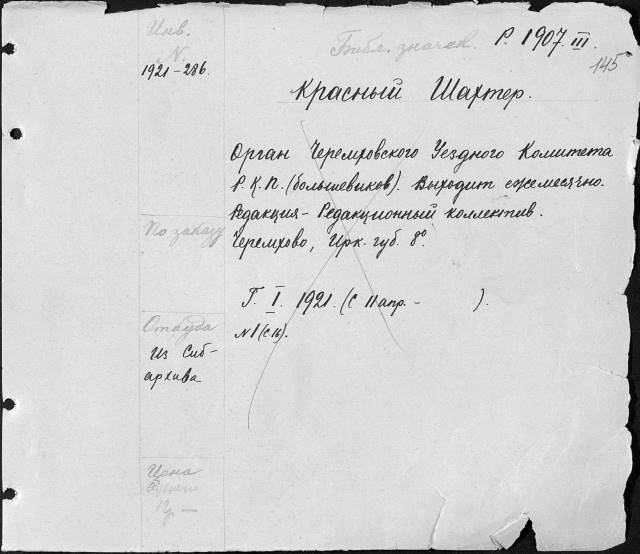 Инв.
N.
1921-286.
Библ. значен. Р. 1907. III.
145
Красный Шахтер.
Орган Черемховского Уездного Комитета
Р.К.П. (большевиков). Выходит ежемесячно.
Редакция - Редакционный коллектив.
Черемхово, Ирк. губ. 8º.
По заказу
Г. I. 1921. (С 11 апр. - ).
N1 (С.16).
Откуда
из Сиб-
архива
Цена